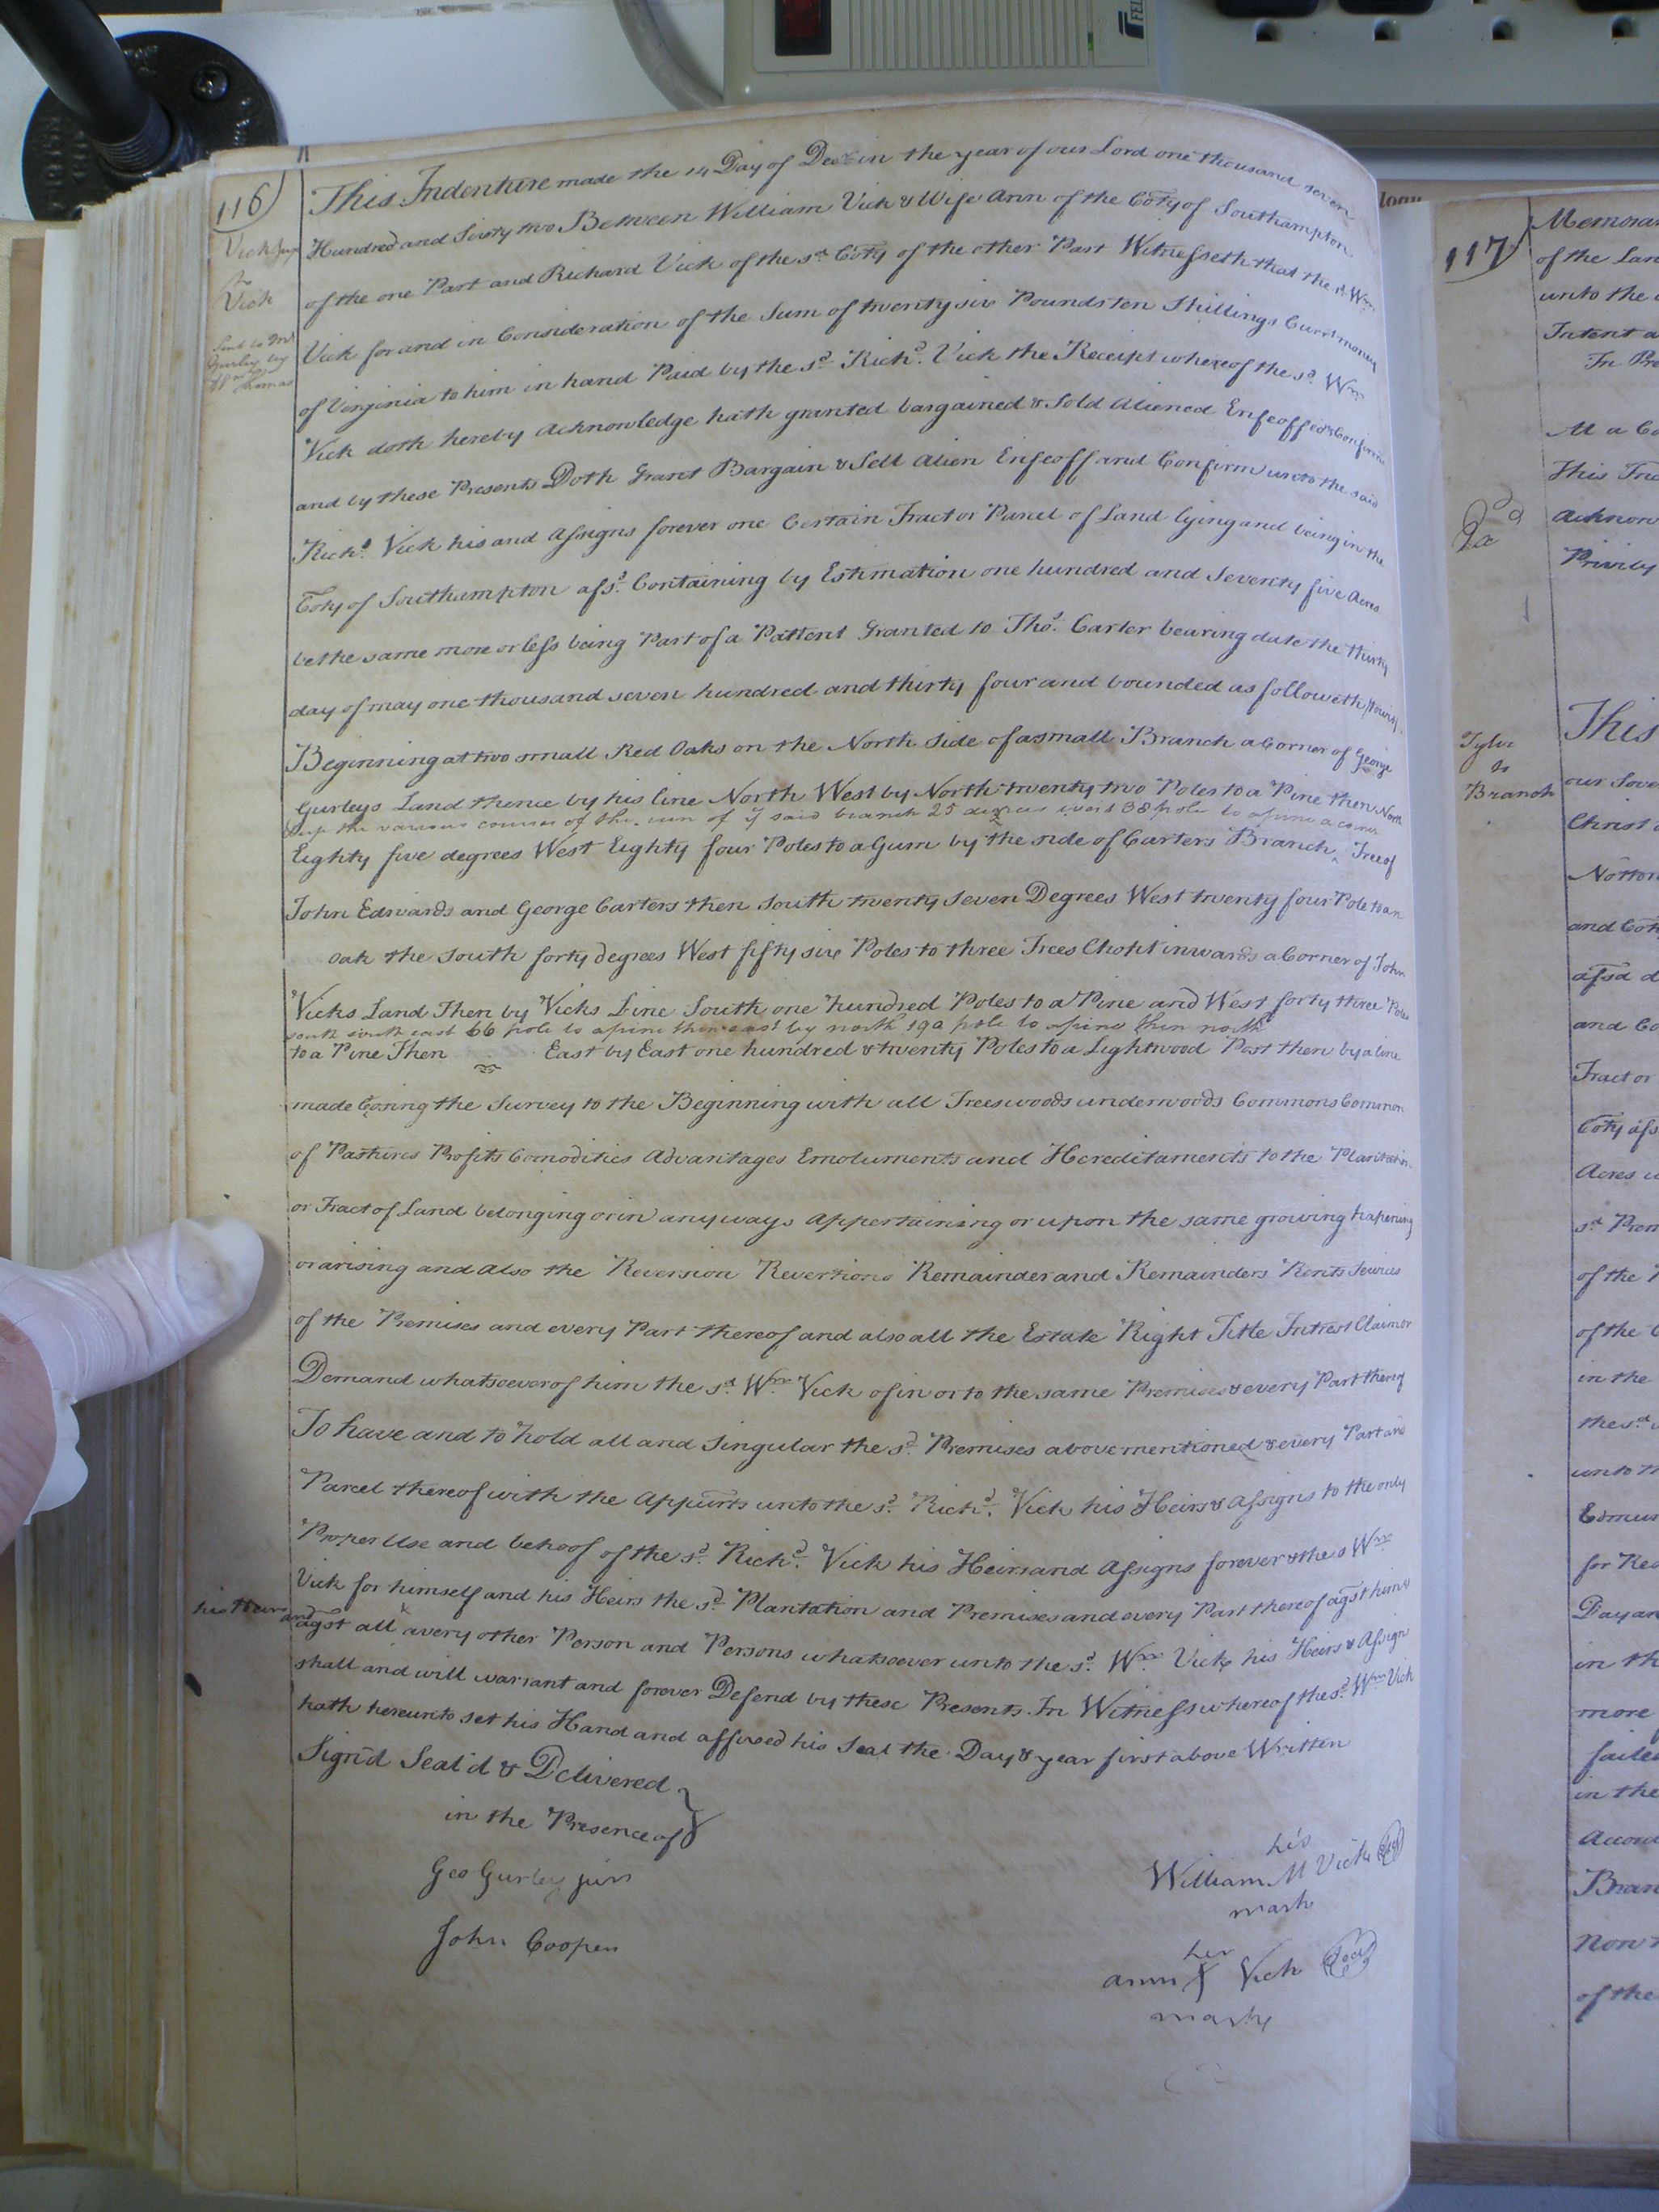 116
Vick
to
Vick
Sent to Mr
Gurley by
Thomas
This Indenture made the 14 Day of Decr in the year of our Lord one thousand seven
Hundred and Sixty two Between William Vick & Wife Ann of the Coty of Southampton
of the one Part and Richard Vick of the sd. Coty of the other Part Witnesseth that the sd. Wm
Vick for and in Consideration of the Sum of twenty six Pounds ten Shillings Currt money
of Virginia to him in hand Paid by the sd. Richd. Vick the Receipt whereof the sd. Wm
Vick doth hereby Acknowledge hath granted bargained & Sold Aliened Enfeoffed & Confirm
and by these Presents Doth Grant Bargain & Sell Alien Enfeoff and Confirm unto the said
Richd. Vick his and Assigns forever one Certain Tract or Parcel of Land lying and being in the
Coty of Southampton afsd. Containing by Estimation one hundred and Seventy five Acres
be the same more or less being Part of a Pattent Granted to Thos. Carter bearing date the thirty
day of may one thousand seven hundred and thirty four and bounded as followeth (towit)
Beginning at two small Red Oaks on the North side of a small Branch a Corner of George
Gurleys Land thence by his line North West by North twenty two Poles to a Pine then North
up the various courses of the run of ye said branch 25 degrees west 38 pole to a pine a corner
Eighty five degrees West Eighty four Poles to a Gum by the side of Carters Branch ^ Tree of
John Edwards and George Carters then South twenty Seven Degrees West twenty four Pole to an
oak the South forty degrees West fifty six Poles to three Trees Chopt inwards a Corner of John
Vicks Land Then by Vicks Line South one hundred Poles to a Pine and West forty three Poles
south south east 66 pole to a pine then east by north 190 pole to a pine then north
to a Pine Then East by East one hundred & twenty Poles to a Lightwood Post then by a line
made Cosing the Survey to the Beginning with all Trees woods underwoods Commons Common
of Pastures Profits Comodities Advantages Emoluments and Hereditaments to the Plantation
or Tract of Land belonging or in any ways Appertaining or upon the same growing hapening
or arising and Also the Reversion Revertions Remainder and Remainders Rents Services
of the Premises and every Part thereof and also all the Estate Right Title Intrest Claim or
Demand whatsoever of him the sd. Wm. Vick of in or to the same Premises & every Part thereof
To have and to hold all and Singular the sd. Premises above mentioned & every Part and
Parcel thereof with the Appurts unto the sd. Richd. Vick his Heirs & Assigns to the only
Proper Use and behoof of the sd. Richd. Vick his Heirs and Assigns forever & the s Wm
Vick for himself and his Heirs the sd. Plantation and Premises and every Part thereof agst him &
his Heirs and
agst all & every other Person and Persons whatsoever unto the sd. Wm. Vick his Heirs & Assigns
shall and will warrant and forever Defend by these Presents. In Witness whereof the sd. Wm Vick
hath hereunto set his Hand and affixed his Seal the Day & year first above Written
Sign'd Seal'd & Delivered
in the Presence of
Geo Gurley junr
John Cooper
his
William M Vick Seal
mark
her
ann X Vick Seal
mark
117
Memoran
of the Lan
unto the
Intent a
In Pre
At a Co
This Ind
Acknow
Privily
Ex
Tyler
to
Branch
This
our Sove
Christ
Notto
and Cot
afsd d
and Co
Tract or
Coty afs
Acres
sd Prem
of the
of the
in the
the sd
unto th
Edmun
for Rea
Day an
in th
more
failed
in the
Accord
Bran
Now
of the